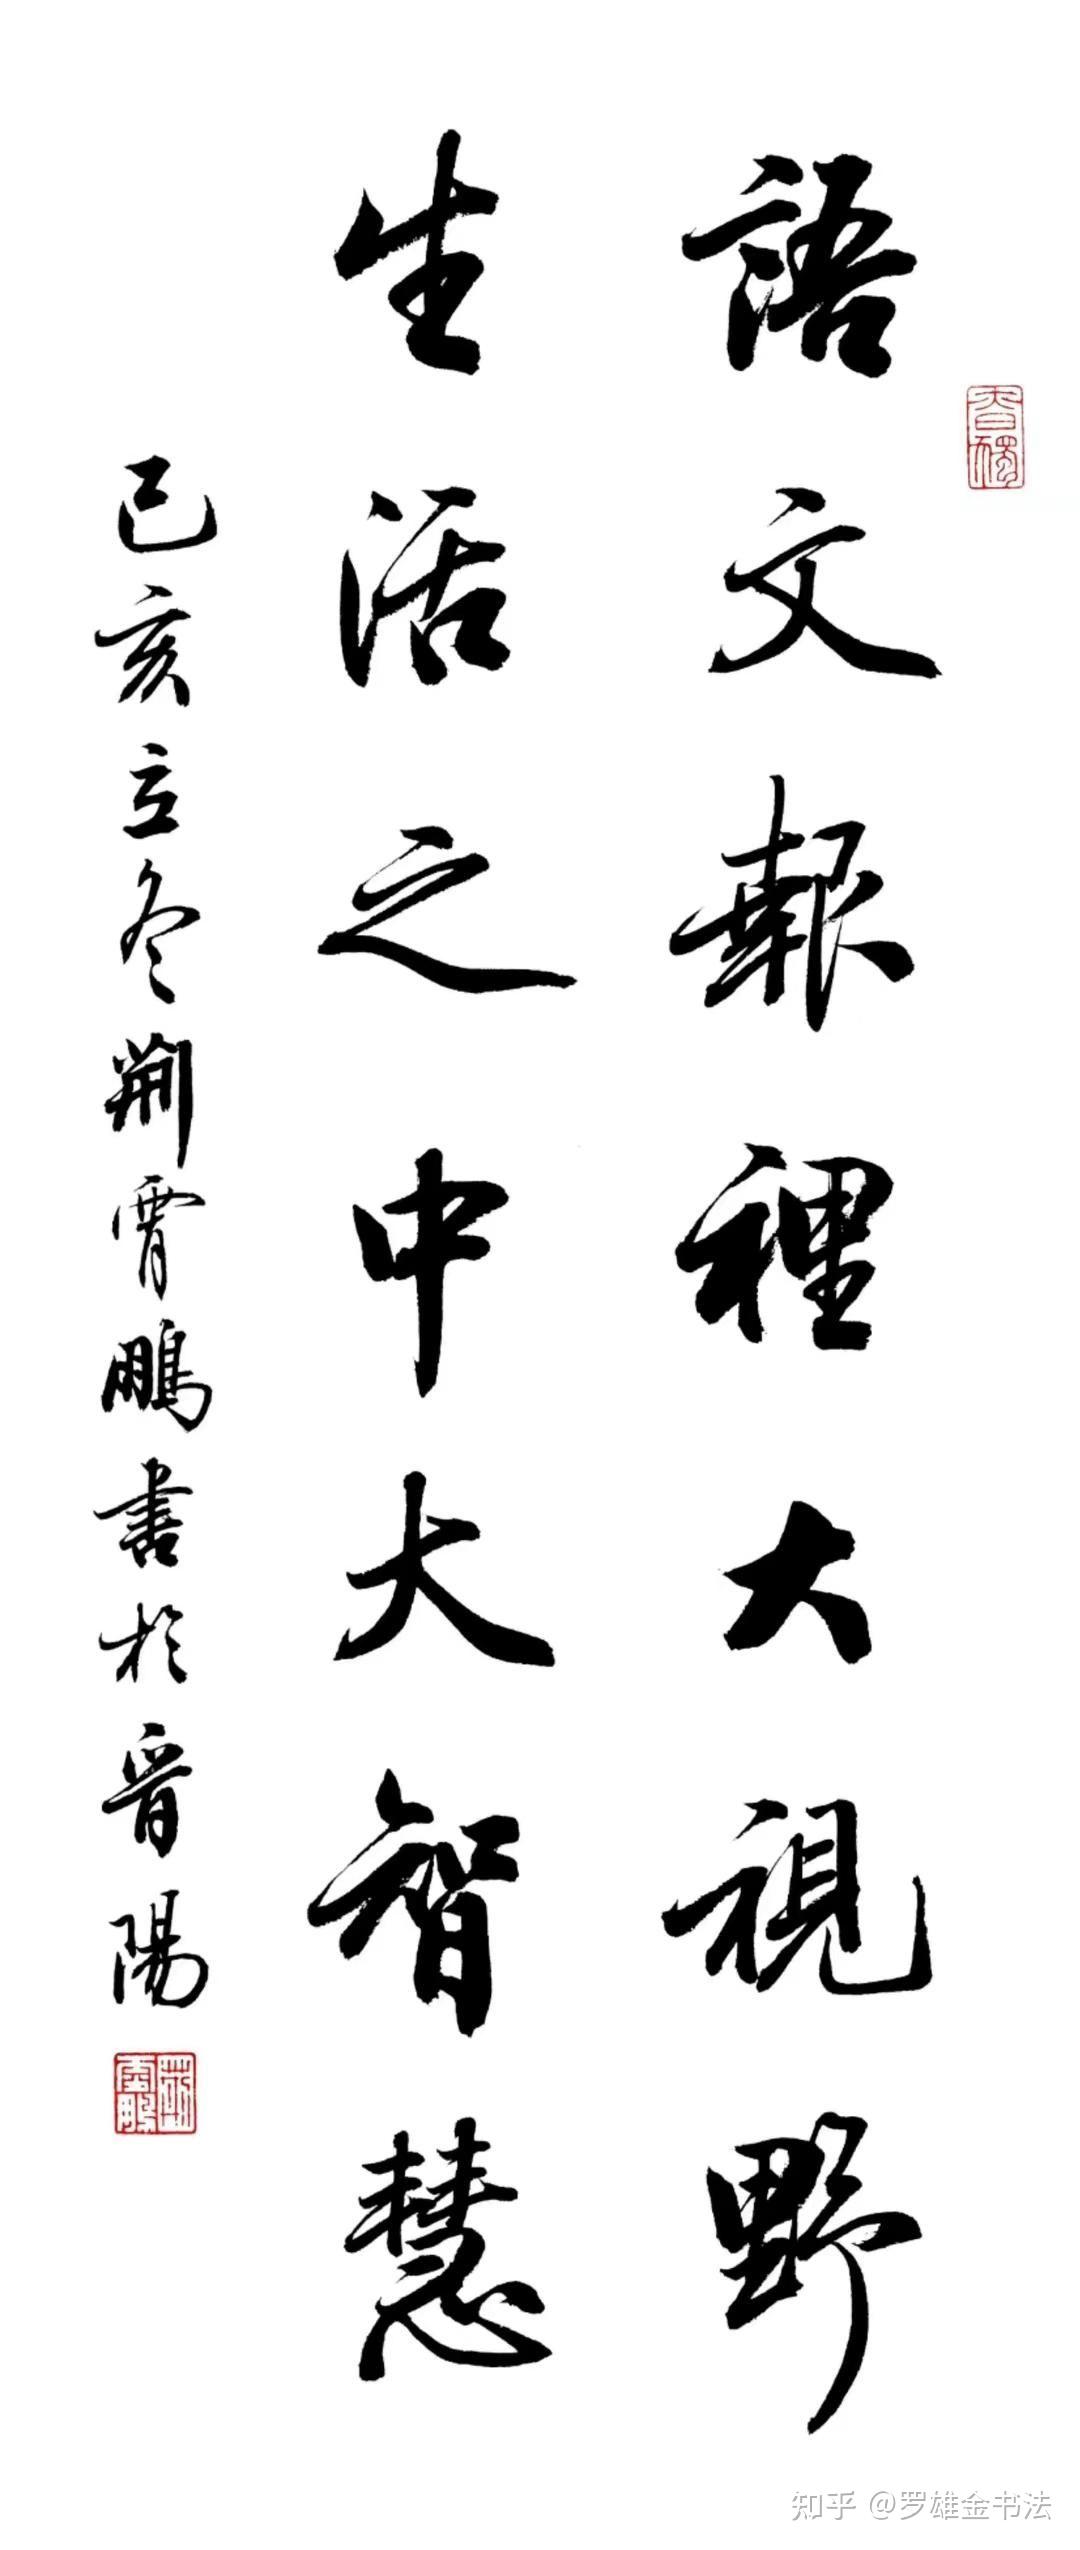 語文報裡大視野
生活之中大智慧
己亥立冬荆霄鵬書於晉陽
知乎 @罗雄金书法